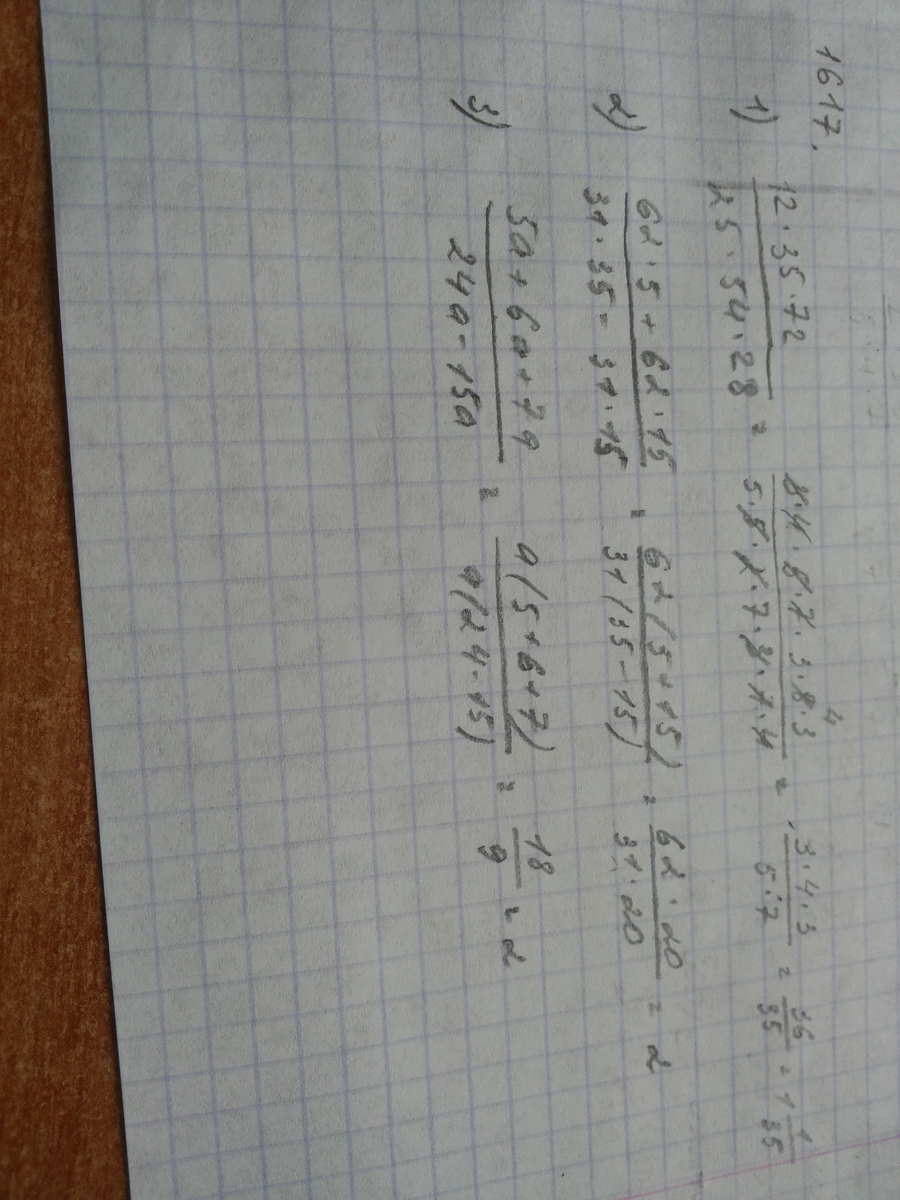 1617.
1) 12·35·72 / 25·54·28 = 3·4·5·7·3·8·3 / 5·5·2·7·4·7·4 = 3·4·3 / 5·7 = 36/35 = 1 1/35
2) 62·5+62·15 / 31·35-31·15 = 62(5+15) / 31(35-15) = 62·20 / 31·20 = 2
3) 5a+6a+7a / 24a-15a = a(5+6+7) / a(24-15) = 18/9 = 2